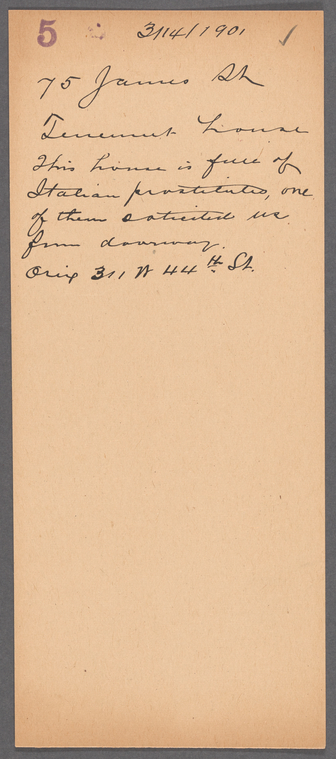 5 3/14/1901 ✓
75 James St
Tenement house
This house is full of
Italian prostitutes, one
of them solicited us
from doorway.
Orig 311 W 44th St.